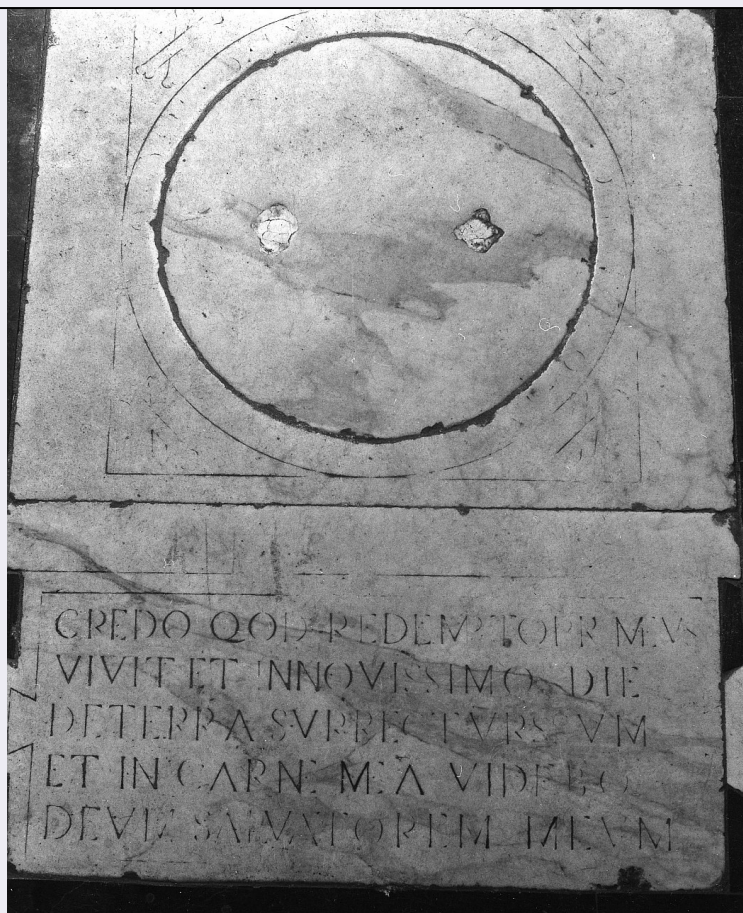 CREDO QOD REDEMPTORR MEVS
VIVIT ET INNOVISSIMO DIE
DETERRA SVRRECTVRS SVM
ET IN CARNE MEA VIDEBO
DEVM SALVATOREM MEVM